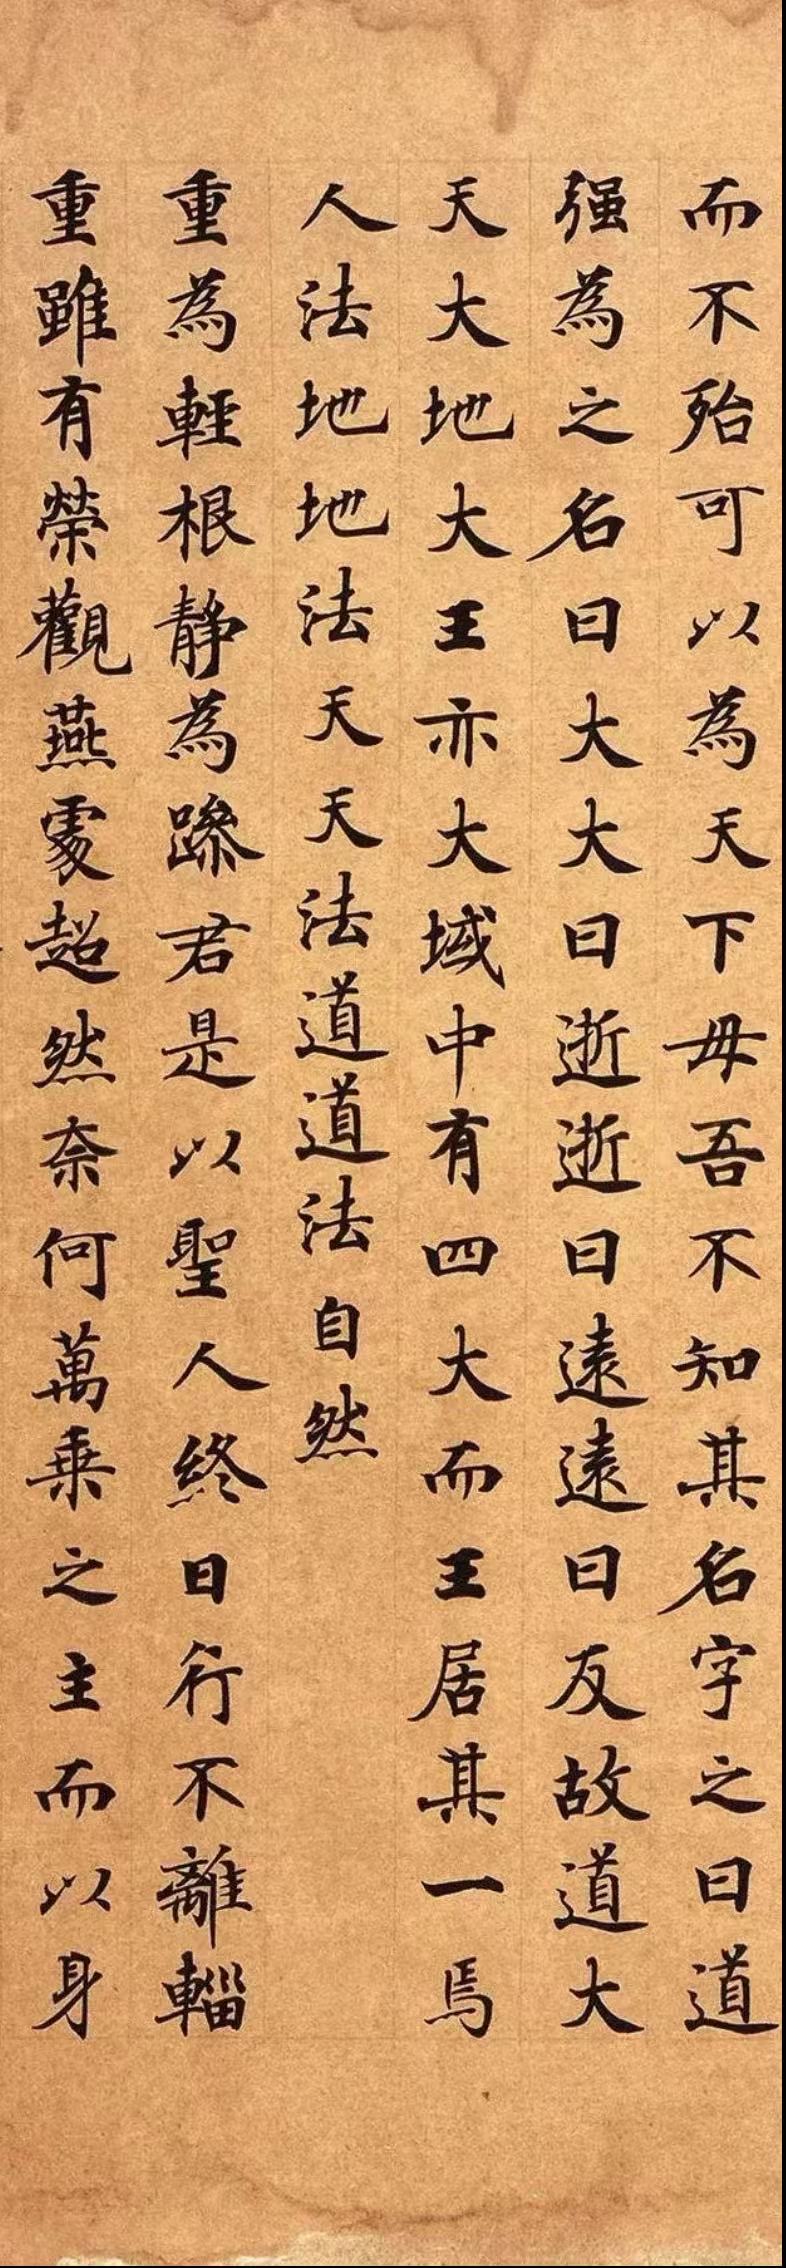 而不殆可以為天下母吾不知其名字之曰道
强為之名曰大大曰逝逝曰遠遠曰反故道大
天大地大王亦大域中有四大而王居其一焉
人法地地法天天法道道法自然
重為輕根静為躁君是以聖人終日行不離輜
重雖有榮觀燕處超然奈何萬乗之主而以身